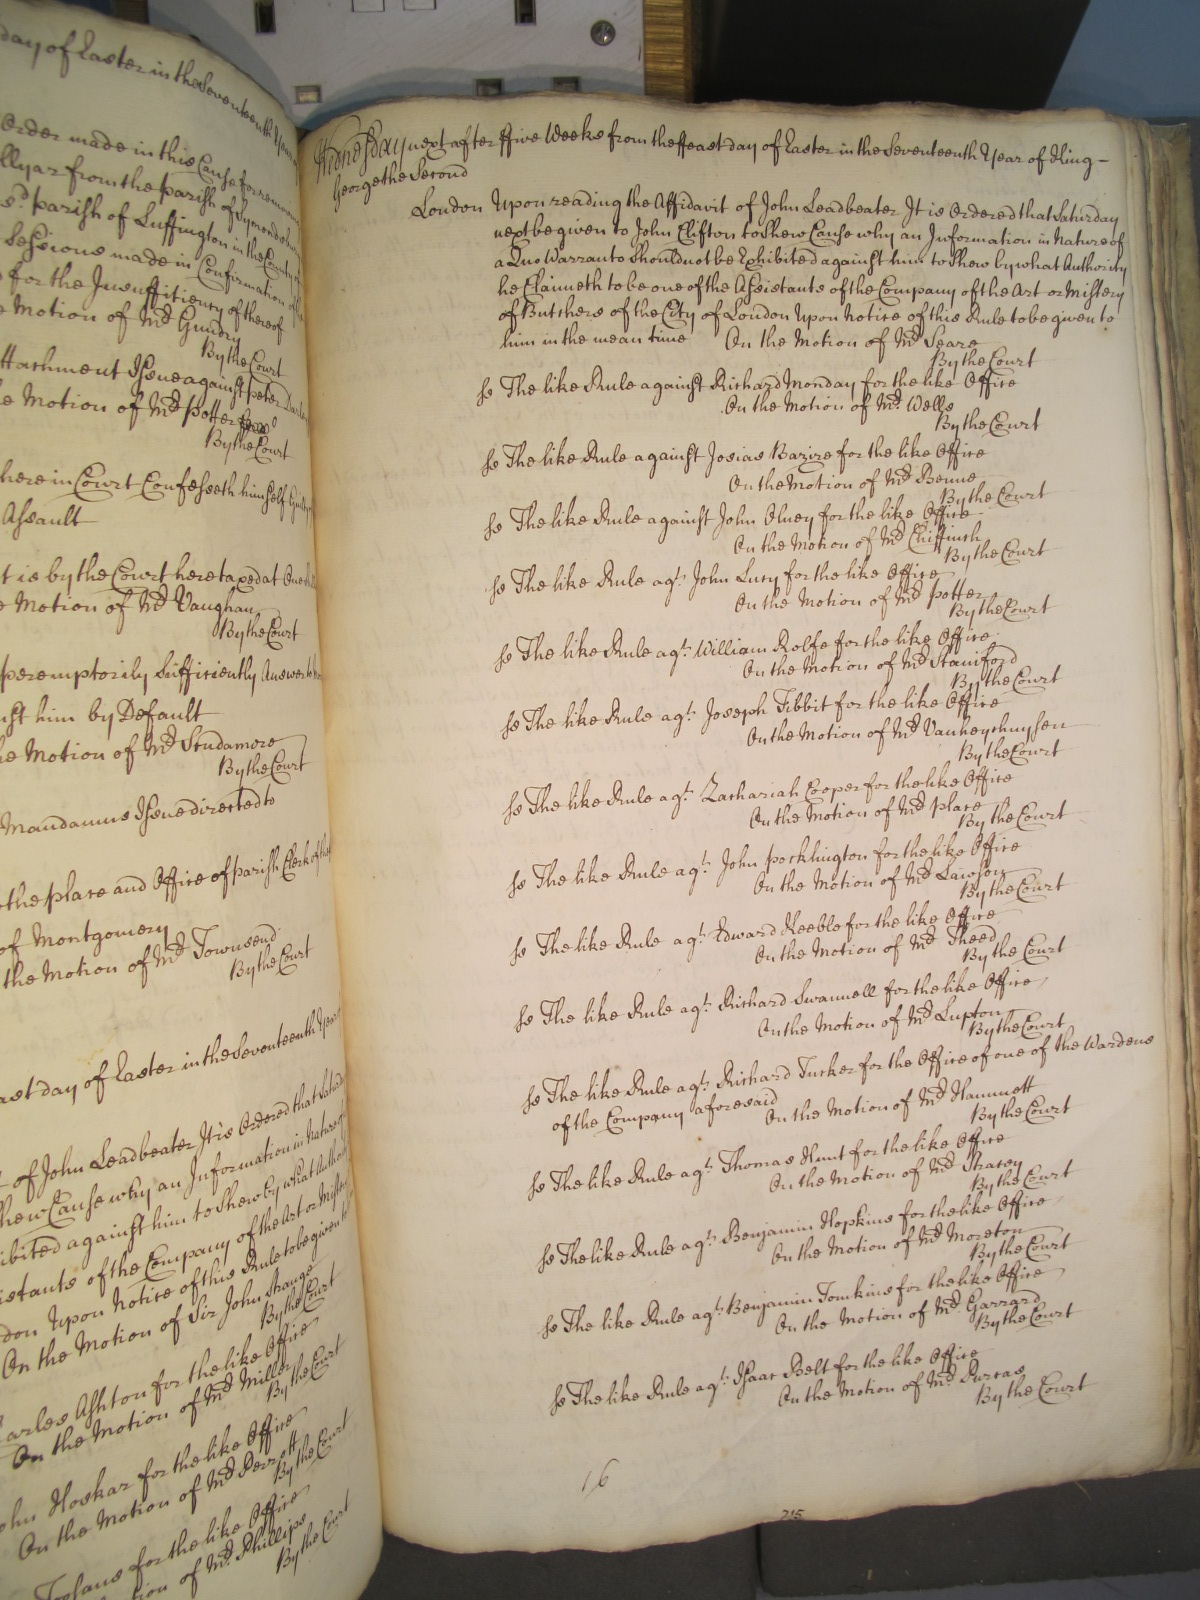 day of Easter in the Seventeenth Year
Order made in this Cause for removing
llyar from the parish of Symondsbury
sd. parish of Luffington in the County
Sessions made in Confirmation
for the Insufficiency thereof
Motion of Mr. Gundry
By the Court
ttachment Issue against peter
e Motion of Mr. potter
By the Court
here in Court Confesseth himself Guilty
Assault
t is by the Court here taxed at One
e Motion of Mr. Vaughan
By the Court
peremptorily Sufficiently Answer
nst him by Default
he Motion of Mr. Scudamore
By the Court
Mandamus Issue directed to
the place and Office of parish Clerk of the
of Montgomery
the Motion of Mr. Townsend
By the Court
ast day of Easter in the Seventeenth Year
t of John Leadbeater It is Ordered that Saturday
Shew Cause why an Information in Nature of
ibited against him to Shew by what Authority
istants of the Company of the Art or Mistery
don Upon Notice of this Rule to be given to
On the Motion of Sir John Strange
By the Court
arles Ashton for the like Office
On the Motion of Mr. Miller
By the Court
ohn Hoskar for the like Office
On the Motion of Mr. Perrott
By the Court
for the like Office
tion of Mr. Phillips
By the Court
Wednesday next after ffive Weeks from the ffeast day of Easter in the Seventeenth Year of King
George the Second
London Upon reading the Affidavit of John Leadbeater It is Ordered that Saturday
next be given to John Clifton to Shew Cause why an Information in Nature of
a Quo Warranto Should not be Exhibited against him to Shew by what Authority
he Claimeth to be one of the Assistants of the Company of the Art or Mistery
of Butchers of the City of London Upon Notice of this Rule to be given to
him in the mean time On the Motion of Mr. Seare
By the Court
ss The like Rule against Richard Monday for the like Office
On the Motion of Mr. Wells
By the Court
ss The like Rule against Josias Bazire for the like Office
On the Motion of Mr. Benne
By the Court
ss The like Rule against John Olney for the like Office
On the Motion of Mr. Chiffinch
By the Court
ss The like Rule agt. John Lucy for the like Office
On the Motion of Mr. potter
By the Court
ss The like Rule agt. William Rolfe for the like Office
On the Motion of Mr. Staniford
By the Court
ss The like Rule agt. Joseph Tibbit for the like Office
On the Motion of Mr. Vanheythuysen
By the Court
ss The like Rule agt. Zachariah Cooper for the like Office
On the Motion of Mr. place
By the Court
ss The like Rule agt. John pocklington for the like Office
On the Motion of Mr. Lawson
By the Court
ss The like Rule agt. Edward Keeble for the like Office
On the Motion of Mr. Theed
By the Court
ss The like Rule agt. Richard Swannell for the like Office
On the Motion of Mr. Lupton
By the Court
ss The like Rule agt. Richard Tucker for the Office of one of the Wardens
of the Company aforesaid On the Motion of Mr. Hammett
By the Court
ss The like Rule agt. Thomas Hunt for the like Office
On the Motion of Mr. Stacey
By the Court
ss The like Rule agt. Benjamin Hopkins for the like Office
On the Motion of Mr. Moreton
By the Court
ss The like Rule agt. Benjamin Tomkins for the like Office
On the Motion of Mr. Garrard
By the Court
ss The like Rule agt. Isaac Belt for the like Office
On the Motion of Mr. Purcas
By the Court
16
215